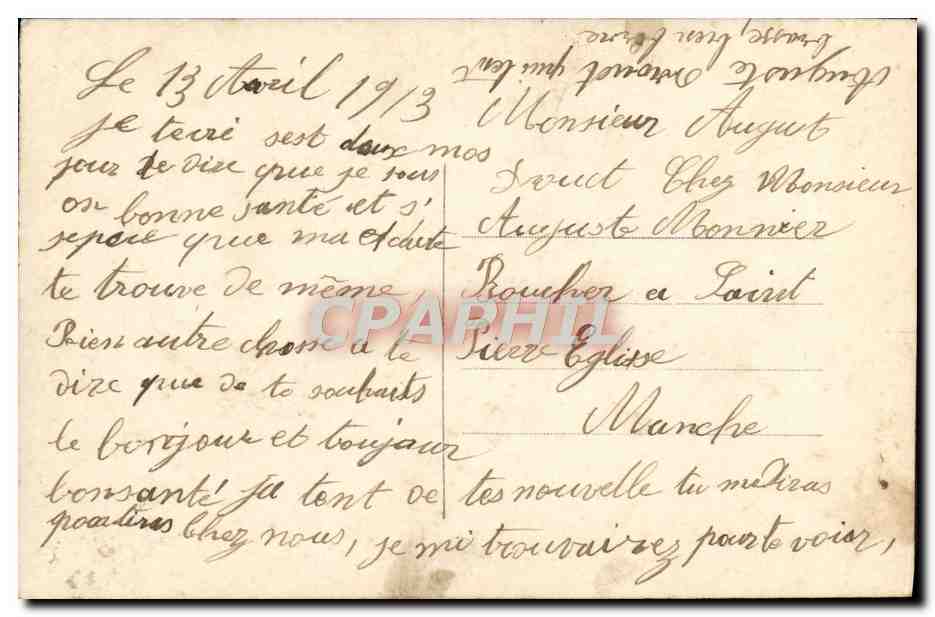 Le 13 Avril 1913
je tecri sest deux mos
jour te dire que je sous
on bonne santé et s'
sepere que ma Cdarte
te trouve de même
Rien autre chosse a te
dire que de te souhaits
le bonjour et toujour
bonsanté ja tent de tes nouvelle tu me diras
quant tiras Chez nous, je mi trouvairez pour te voir,
Monsieur August
Drouet Chez Monsieur
Auguste Monnier
Boucher a Saint
Pierre Eglisse
Manche
Auguste Drouet qui tent
brasse, bien forre
CPAPHIL